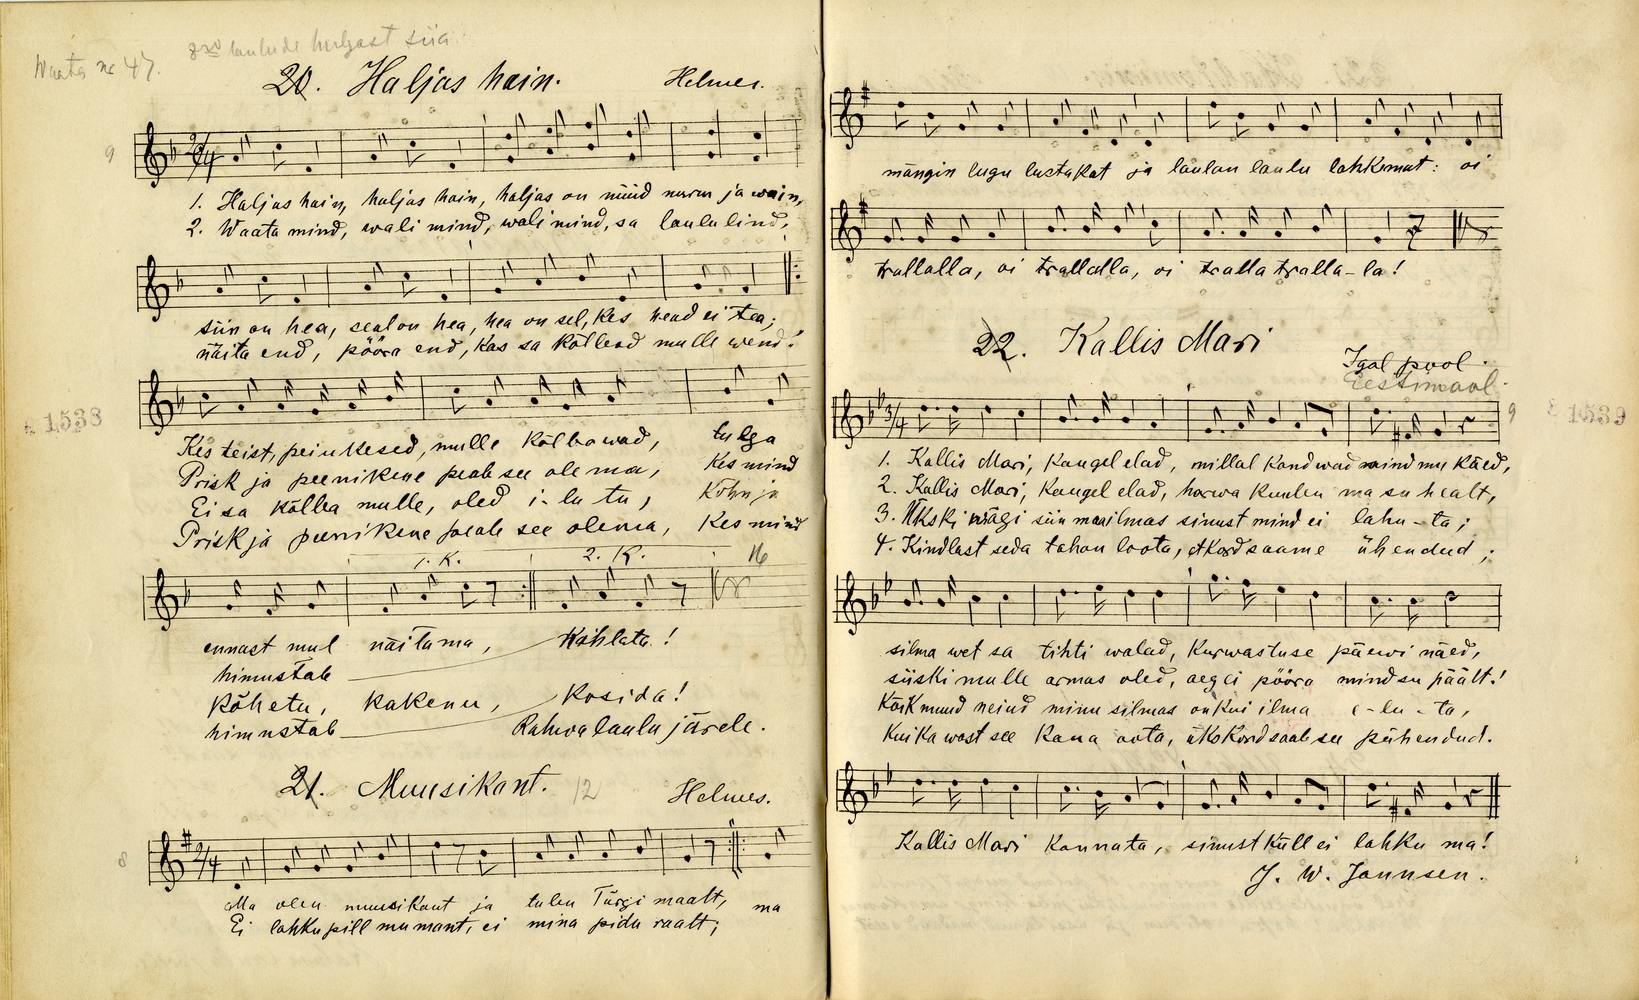 Waata nr 47.
laulude hulgast siia
20. Haljas hain. Helmes.
9
1. Haljas hain, haljas hain, haljas on nüüd nurm ja wain,
2. Waata mind, wali mind, wali mind, sa laulu lind,
siin on hea, seal on hea, hea on sel, kes head ei tea;
näita end, pööra end, kas sa kõlbad mulle wend!
Kes teist, peiukesed, mulle kõlbawad, tulga
Prisk ja peenikene peab see olema, kes mind
Ei sa kõlba mulle, oled i-lu tu, kõhn ja
Prisk ja peenikene peab see olema, kes mind
1. K. 2. K. 16
ennast mul näitama, kõhlata!
himustab
kõhetu, kakenu, kosida!
himustab Rahwalaulu järele.
21. Muusikant. 12 Helmes.
8
Ma olen muusikant ja tulen Türgi maalt, ma
Ei lahku pill mu mant, ei mina pidu raalt;
A 1538
mängin lugu lustakat ja laulan laulu lahkemat: oi
trallalla, oi trallalla, oi tralla tralla-la!
22. Kallis Mari
Igal pool
Eestimaal.
9
E 1539
1. Kallis Mari, kaugel elad, millal kandwad mind mu käed,
2. Kallis Mari, kaugel elad, harwa kuulen ma su healt,
3. Ükski wägi siin maailmas sinust mind ei lahu-ta;
4. Kindlast seda tahan loota, et kord saame ühendud;
silma wet sa tihti walad, kurwastuse päewi näed,
siiski mulle armas oled, aeg ei pööra mind su päält!
Kõik muud neiud minu silmas on kui ilma e-lu-ta,
kui ka wast see kaua oota, ükskord saab see pühendud.
Kallis Mari kannata, sinust küll ei lahku ma!
J. W. Jannsen.